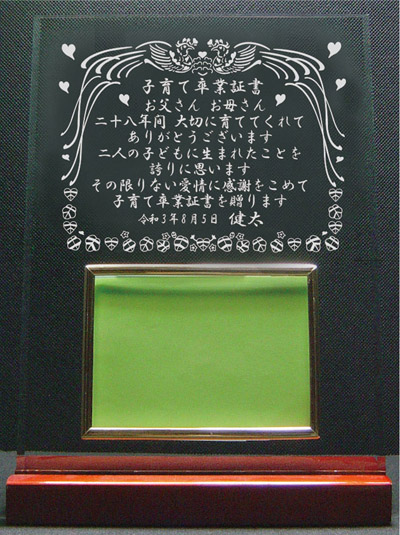 子育て卒業証書
お父さん お母さん
二十八年間 大切に育ててくれて
ありがとうございます
二人の子どもに生まれたことを
誇りに思います
その限りない愛情に感謝をこめて
子育て卒業証書を贈ります
令和3年8月5日 健太